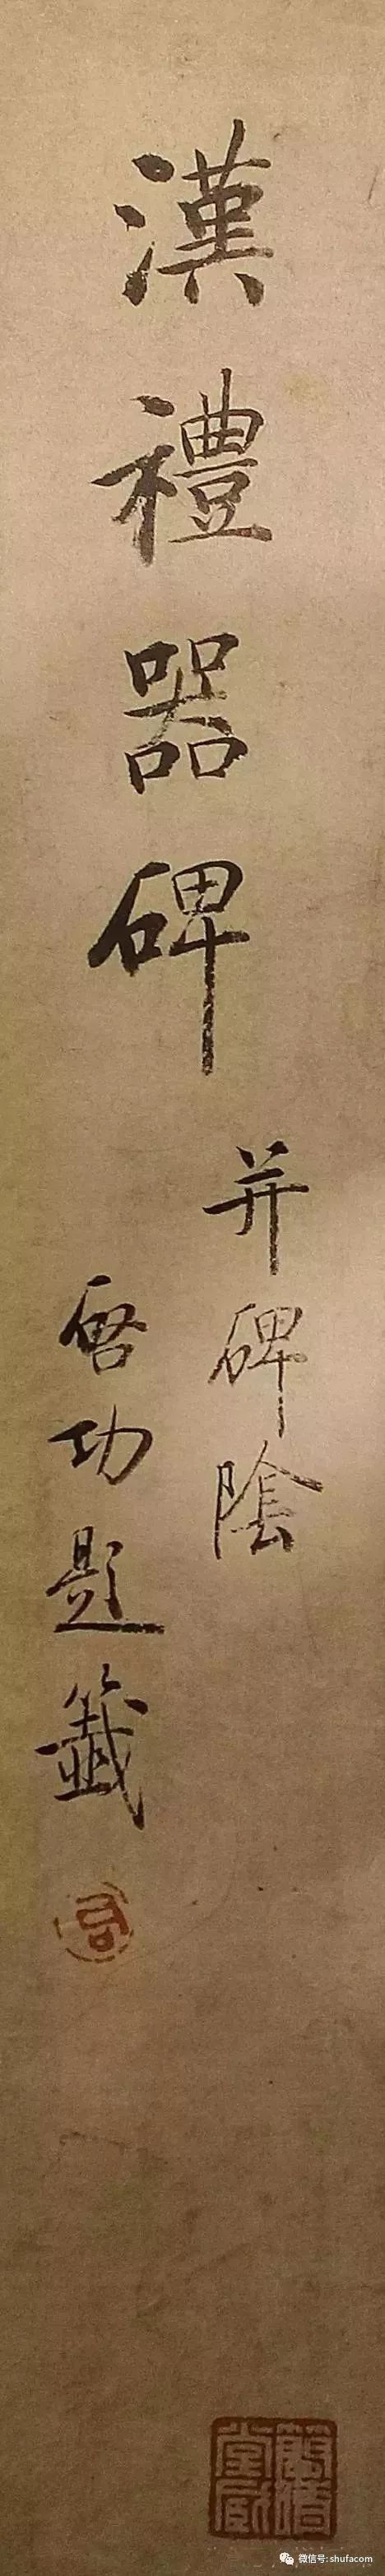 漢禮器碑
并碑陰
啓功題籤
微信号: shufacom